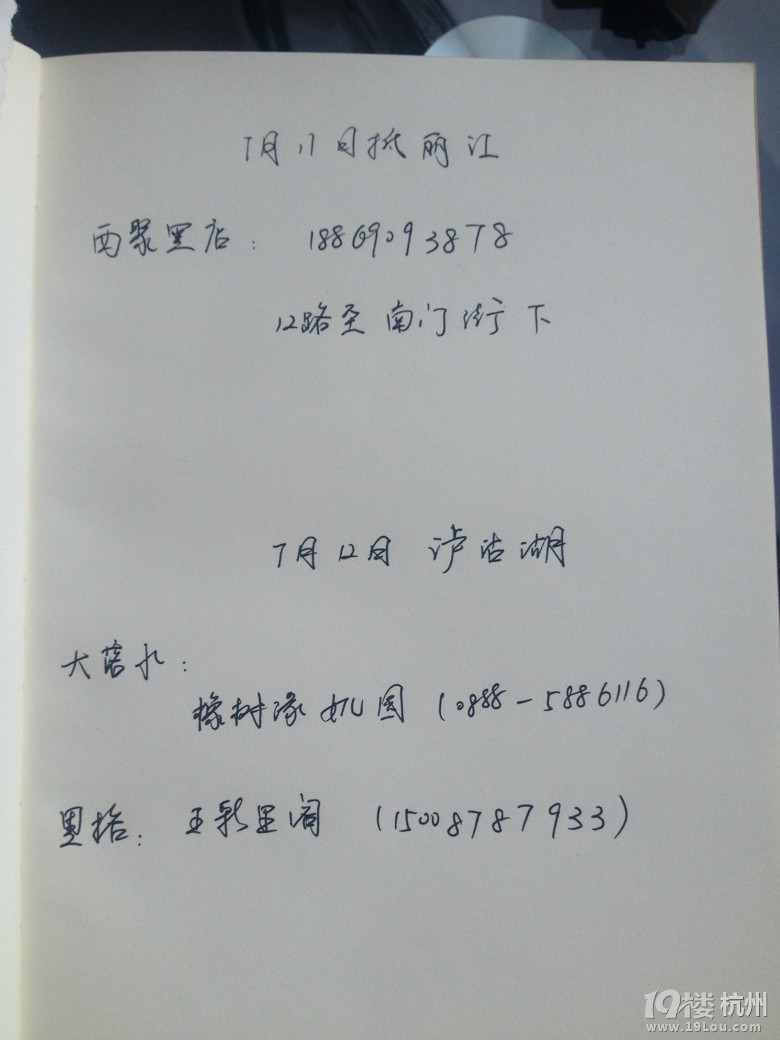 7月11日抵丽江
西聚里店： 18869093878
12路至南门街下
7月12日 泸沽湖
大落水：
橡树缘 园 (0888-5886116)
里格： 王 里阁 (15008787933)
19楼杭州
www.19Lou.com